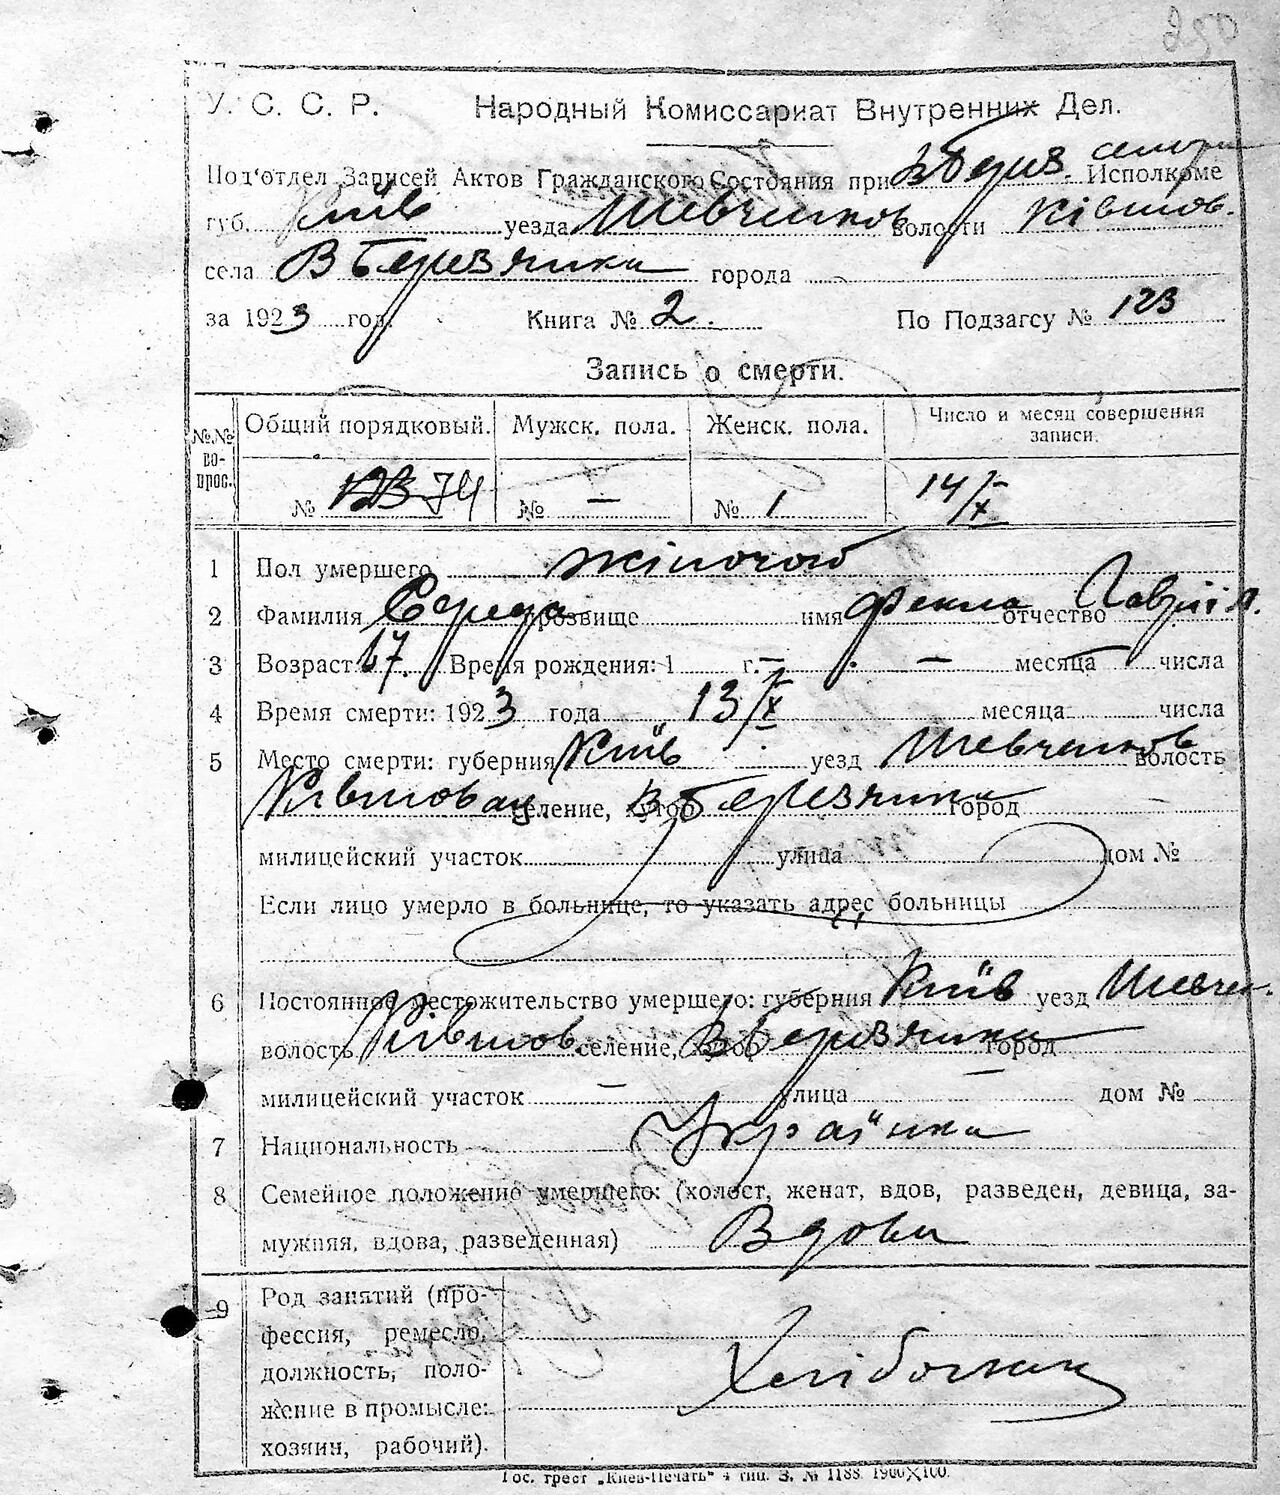 250
У. С. С. Р. Народный Комиссариат Внутренних Дел.
Под'отдел Записей Актов Гражданского Состояния при В Берез. Исполкоме
губ. Київ уезда Шевченков волости Ківшов.
села В Березянки города
за 1923 год. Книга № 2. По Подзагсу № 123
Запись о смерти.
№№ вопрос. Общий порядковый. Мужск. пола. Женск. пола. Число и месяц совершения записи.
№ 123 74 № — № 1 14/X
1 Пол умершего жіночої
2 Фамилия Середа прозвище имя Фекла отчество Гавриїл.
3 Возраст 67. Время рождения: 1 г. — . — месяца числа
4 Время смерти: 1923 года 13/X месяца числа
5 Место смерти: губерния Київ уезд Шевченков волость
Ківшовац. селение, хутор В Березянка город
милицейский участок улица дом №
Если лицо умерло в больнице, то указать адрес больницы
6 Постоянное местожительство умершего: губерния Київ уезд Шевчен.
волость Ківшов селение, хутор В Березянка город
милицейский участок — улица — дом №
7 Национальность Українка
8 Семейное положение умершего: (холост, женат, вдов, разведен, девица, за-
мужняя, вдова, разведенная) Вдова
9 Род занятий (про-
фессия, ремесло,
должность, поло-
жение в промысле:
хозяин, рабочий).
Хлібопашец
Гос. трест „Киев-Печать" 4 тип. З. № 1188. 1900×100.